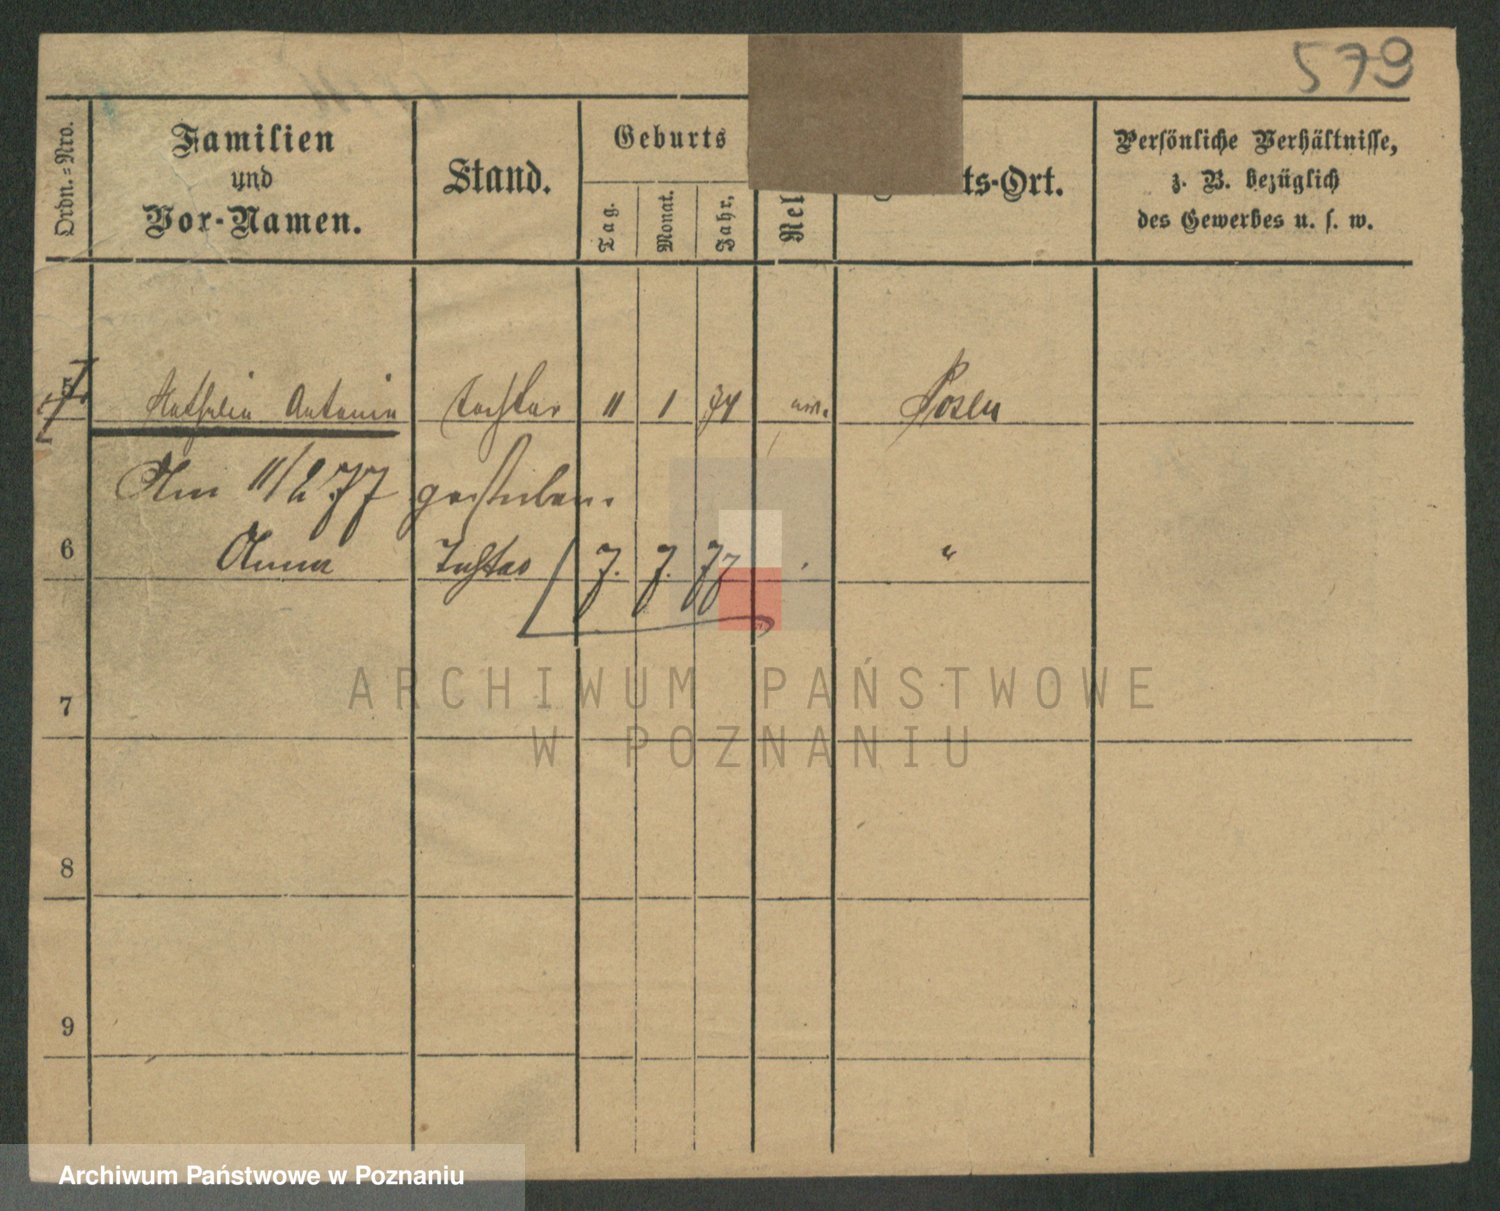 579
Ordn.=Nro.
Familien
und
Vor-Namen.
Stand.
Geburts
Tag.
Monat.
Jahr,
Rel
ts-Ort.
Persönliche Verhältnisse,
z. B. bezüglich
des Gewerbes u. s. w.
5 Antonia Tochter 11 1 74 Posen
Am 11/2 77 gestorben.
6 Anna Tochter 7. 7. 77 "
7
8
9
ARCHIWUM PAŃSTWOWE
W POZNANIU
Archiwum Państwowe w Poznaniu